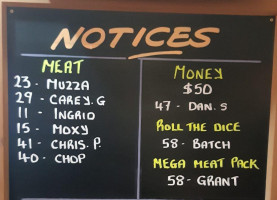 NOTICES
MEAT
23 - MUZZA
29 - CAREY. G
11 - INGRID
15 - MOXY
41 - CHRIS. P.
40 - CHOP
MONEY
$50
47 - DAN. S
ROLL THE DICE
58 - BATCH
MEGA MEAT PACK
58 - GRANT